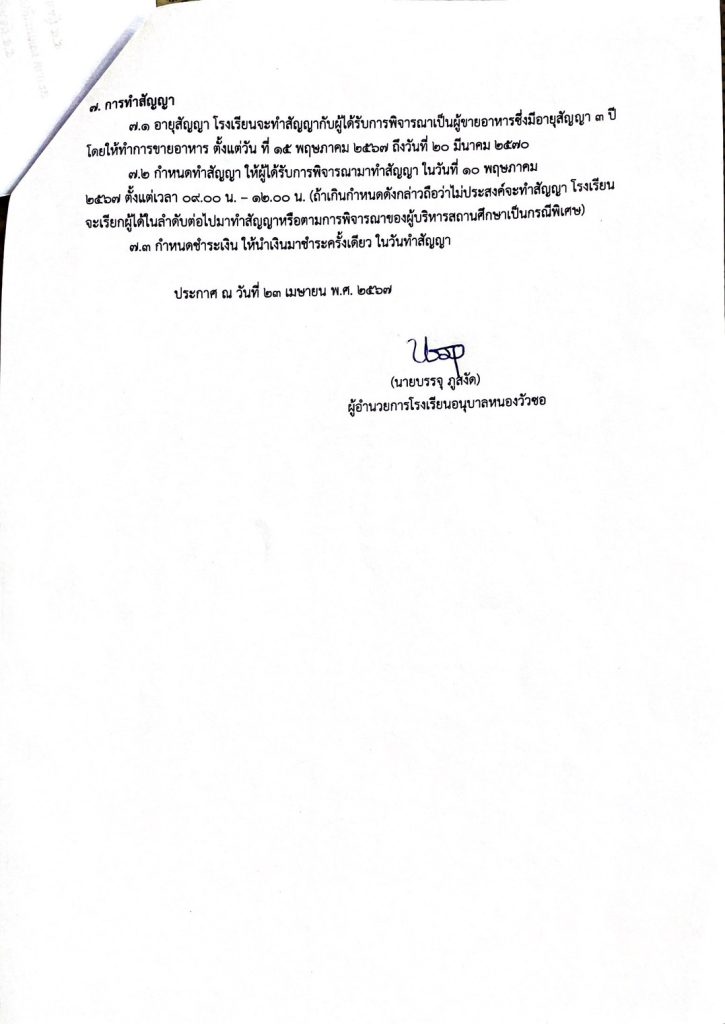 ๗. การทำสัญญา
๗.๑ อายุสัญญา โรงเรียนจะทำสัญญากับผู้ได้รับการพิจารณาเป็นผู้ขายอาหารซึ่งมีอายุสัญญา ๓ ปี
โดยให้ทำการขายอาหาร ตั้งแต่วัน ที่ ๑๕ พฤษภาคม ๒๕๖๗ ถึงวันที่ ๒๐ มีนาคม ๒๕๗๐
๗.๒ กำหนดทำสัญญา ให้ผู้ได้รับการพิจารณามาทำสัญญา ในวันที่ ๑๐ พฤษภาคม
๒๕๖๗ ตั้งแต่เวลา ๐๙.๐๐ น. – ๑๒.๐๐ น. (ถ้าเกินกำหนดดังกล่าวถือว่าไม่ประสงค์จะทำสัญญา โรงเรียน
จะเรียกผู้ได้ในลำดับต่อไปมาทำสัญญาหรือตามการพิจารณาของผู้บริหารสถานศึกษาเป็นกรณีพิเศษ)
๗.๓ กำหนดชำระเงิน ให้นำเงินมาชำระครั้งเดียว ในวันทำสัญญา
ประกาศ ณ วันที่ ๒๓ เมษายน พ.ศ. ๒๕๖๗
(นายบรรจุ ภูสงัด)
ผู้อำนวยการโรงเรียนอนุบาลหนองวัวซอ